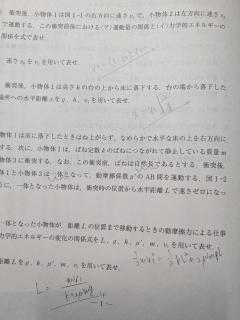 衝突後、小物体1は図1-1の右方向に速さv₁で、小物体2は左方向に速さv₂
で運動する。この衝突前後における(ア)運動量の関係と(イ)力学的エネルギーの
関係を式で表せ。
速さv₀を v₁ を用いて表せ。
衝突後、小物体1は高さhの台の上から床に落下する。台の端から落下した
場所への水平距離xをg、h、v₁を用いて表せ。
物体1は床に落下したときはね上がらず、なめらかで水平な床の上を右方向に
する。次に、小物体1は、ばね定数kのばねにつながれて静止している質量m
物体3に衝突する。なお、この衝突前、ばねは自然長であるとする。衝突後、
1と小物体3は一体となって、動摩擦係数μ'のAB間を運動する。図1-2
うに、一体となった小物体は、衝突時の位置から水平距離Lで速さゼロになっ
一体となった小物体が、距離Lの位置まで移動するときの動摩擦力による仕事
力学的エネルギーの変化の関係式をL、g、k、μ'、m、v₁を用いて表せ。
距離Lをg、k、μ'、m、v₁を用いて表せ。
L =